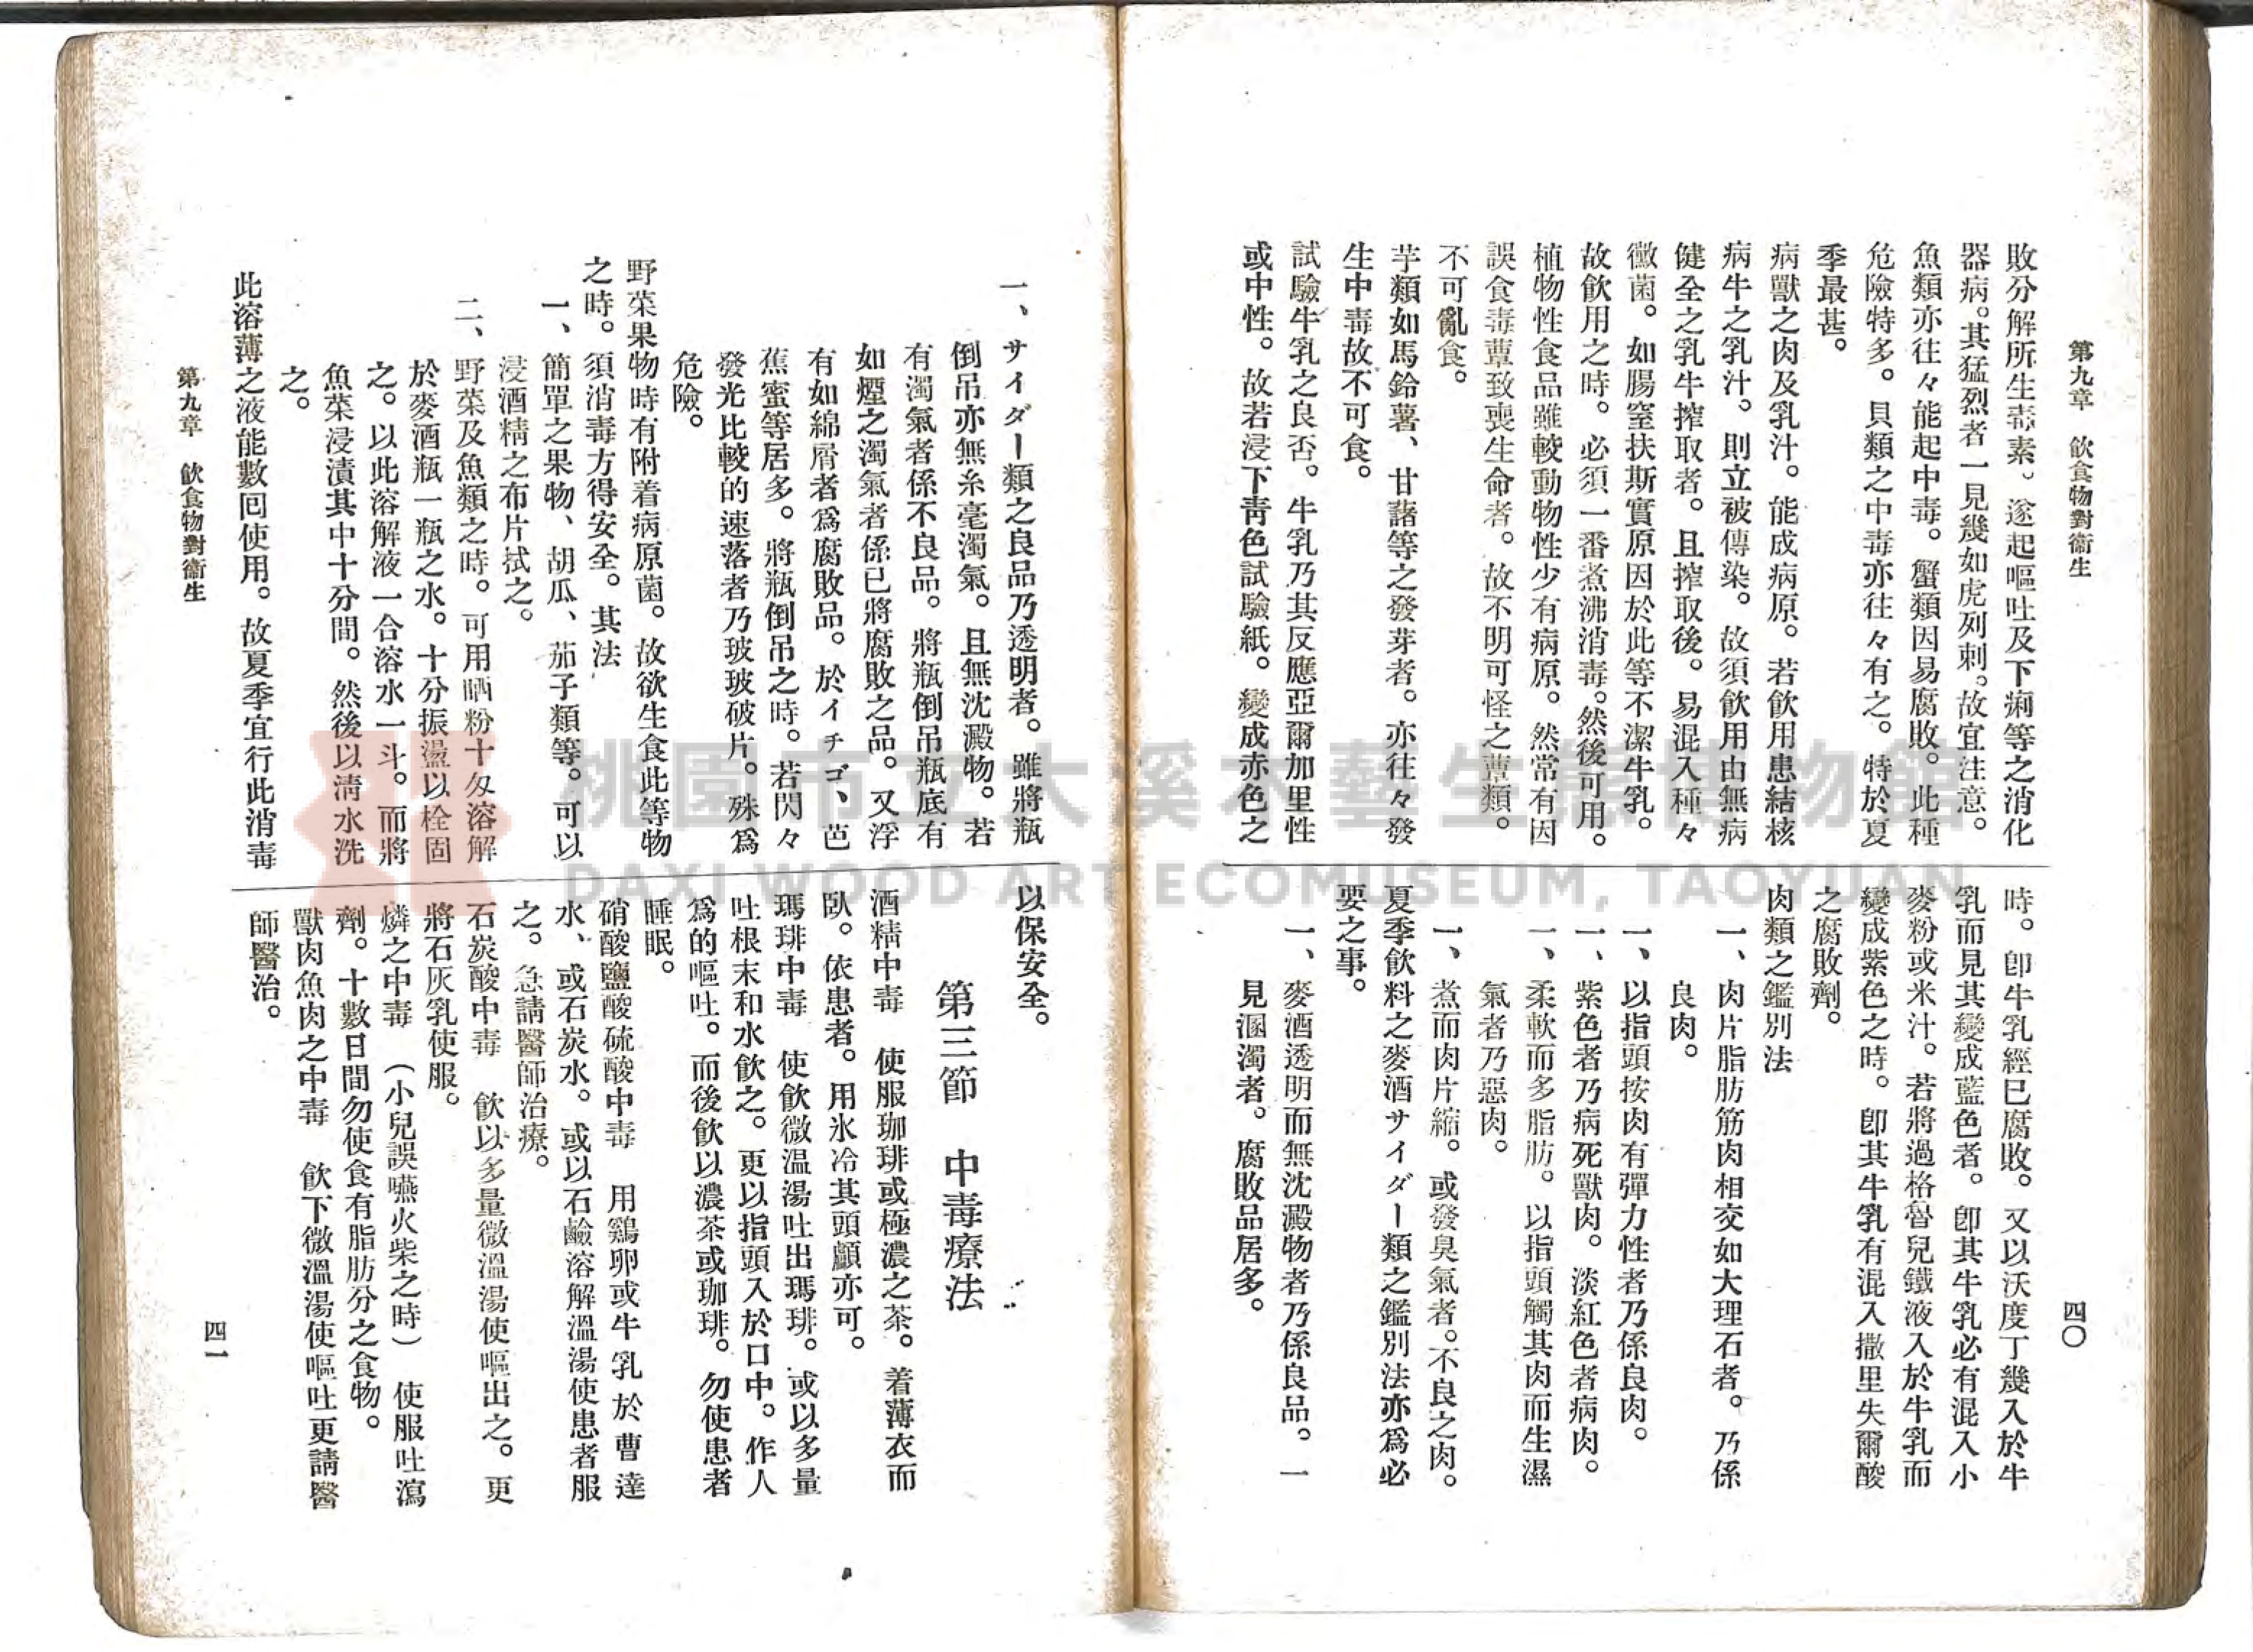 第九章　飲食物對衞生
四〇
敗分解所生毒素。遂起嘔吐及下痢等之消化
器病。其猛烈者一見幾如虎列刺。故宜注意。
魚類亦往々能起中毒。蟹類因易腐敗。此種
危險特多。貝類之中毒亦往々有之。特於夏
季最甚。
病獸之肉及乳汁。能成病原。若飲用患結核
病牛之乳汁。則立被傳染。故須飲用由無病
健全之乳牛搾取者。且搾取後。易混入種々
黴菌。如腸窒扶斯實原因於此等不潔牛乳。
故飲用之時。必須一番煮沸消毒。然後可用。
植物性食品雖較動物性少有病原。然常有因
誤食毒蕈致喪生命者。故不明可怪之蕈類。
不可亂食。
芋類如馬鈴薯、甘藷等之發芽者。亦往々發
生中毒故不可食。
試驗牛乳之良否。牛乳乃其反應亞爾加里性
或中性。故若浸下靑色試驗紙。變成赤色之
時。卽牛乳經已腐敗。又以沃度丁幾入於牛
乳而見其變成藍色者。卽其牛乳必有混入小
麥粉或米汁。若將過格魯兒鐵液入於牛乳而
變成紫色之時。卽其牛乳有混入撒里失爾酸
之腐敗劑。
肉類之鑑別法
一、肉片脂肪筋肉相交如大理石者。乃係
良肉。
一、以指頭按肉有彈力性者乃係良肉。
一、紫色者乃病死獸肉。淡紅色者病肉。
一、柔軟而多脂肪。以指頭觸其肉而生濕
氣者乃惡肉。
一、煮而肉片縮。或發臭氣者。不良之肉。
夏季飲料之麥酒サイダー類之鑑別法亦爲必
要之事。
一、麥酒透明而無沈澱物者乃係良品。一
見溷濁者。腐敗品居多。
一、サイダー類之良品乃透明者。雖將瓶
倒吊亦無糸毫濁氣。且無沈澱物。若
有濁氣者係不良品。將瓶倒吊瓶底有
如煙之濁氣者係已將腐敗之品。又浮
有如綿屑者爲腐敗品。於イチゴ、芭
蕉蜜等居多。將瓶倒吊之時。若閃々
發光比較的速落者乃玻玻破片。殊爲
危險。
野菜果物時有附着病原菌。故欲生食此等物
之時。須消毒方得安全。其法
一、簡單之果物、胡瓜、茄子類等。可以
浸酒精之布片拭之。
二、野菜及魚類之時。可用晒粉十匁溶解
於麥酒瓶一瓶之水。十分振盪以栓固
之。以此溶解液一合溶水一斗。而將
魚菜浸漬其中十分間。然後以淸水洗
之。
此溶薄之液能數囘使用。故夏季宜行此消毒
以保安全。
第三節　中毒療法
酒精中毒　使服珈琲或極濃之茶。着薄衣而
臥。依患者。用氷冷其頭顱亦可。
瑪琲中毒　使飲微溫湯吐出瑪琲。或以多量
吐根末和水飲之。更以指頭入於口中。作人
爲的嘔吐。而後飲以濃茶或珈琲。勿使患者
睡眠。
硝酸鹽酸硫酸中毒　用鷄卵或牛乳於曹達
水、或石炭水。或以石鹼溶解溫湯使患者服
之。急請醫師治療。
石炭酸中毒　飲以多量微溫湯使嘔出之。更
將石灰乳使服。
燐之中毒　（小兒誤嚥火柴之時）　使服吐瀉
劑。十數日間勿使食有脂肪分之食物。
獸肉魚肉之中毒　飲下微溫湯使嘔吐更請醫
師醫治。
第九章　飲食物對衞生
四一
桃園市立大溪木藝生態博物館
DAXI WOOD ART ECOMUSEUM, TAOYUAN